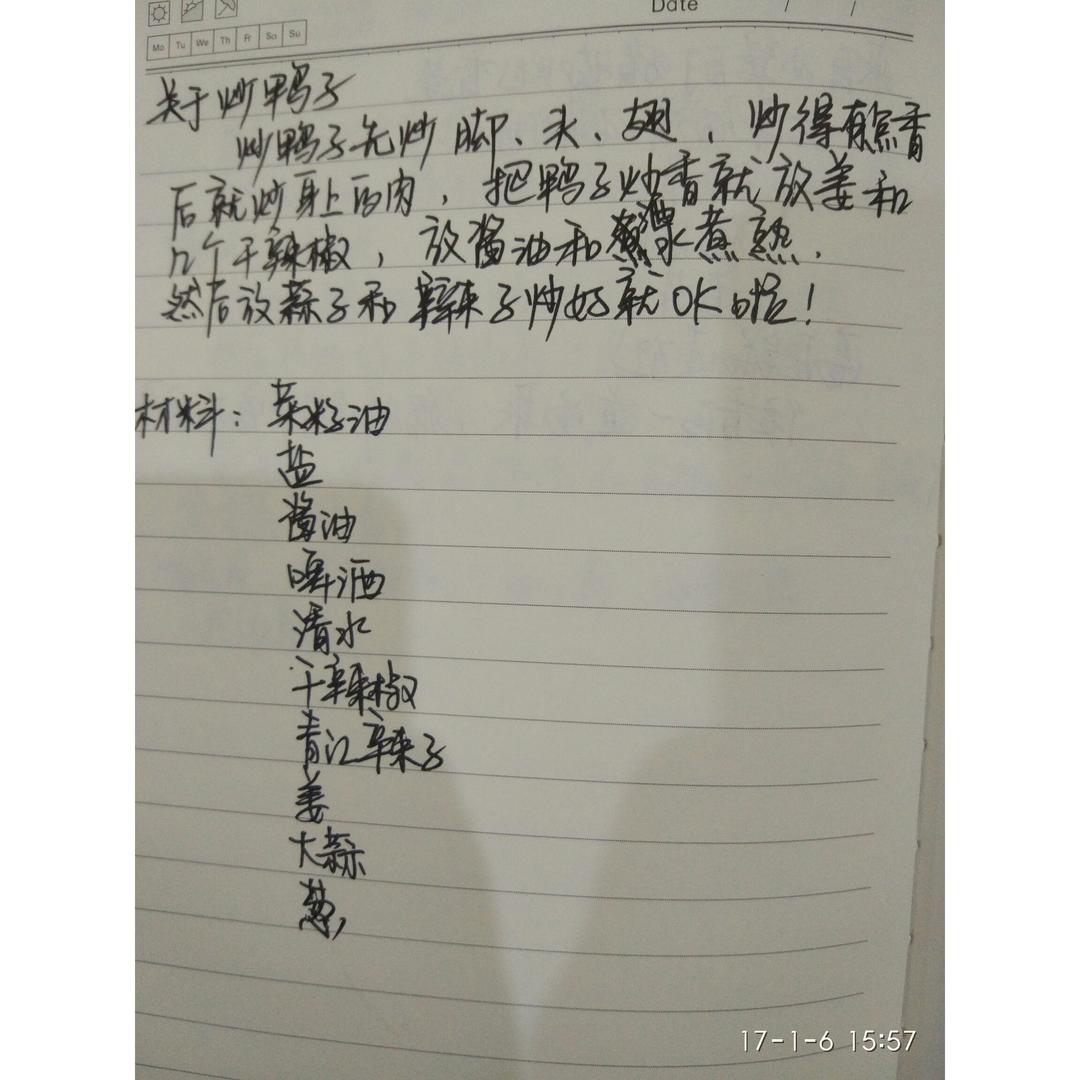 Date / /
Mo Tu We Th Fr Sa Su
关于炒鸭子
炒鸭子先炒脚、头、翅，炒得有焦香
后就炒身上的肉，把鸭子炒香就放姜和
几个干辣椒，放酱油和酒水煮熟.
然后放蒜子和辣子炒好就OK啦！
材料：菜籽油
盐
酱油
啤酒
清水
干辣椒
青江辣子
姜
大蒜
葱
17-1-6 15:57